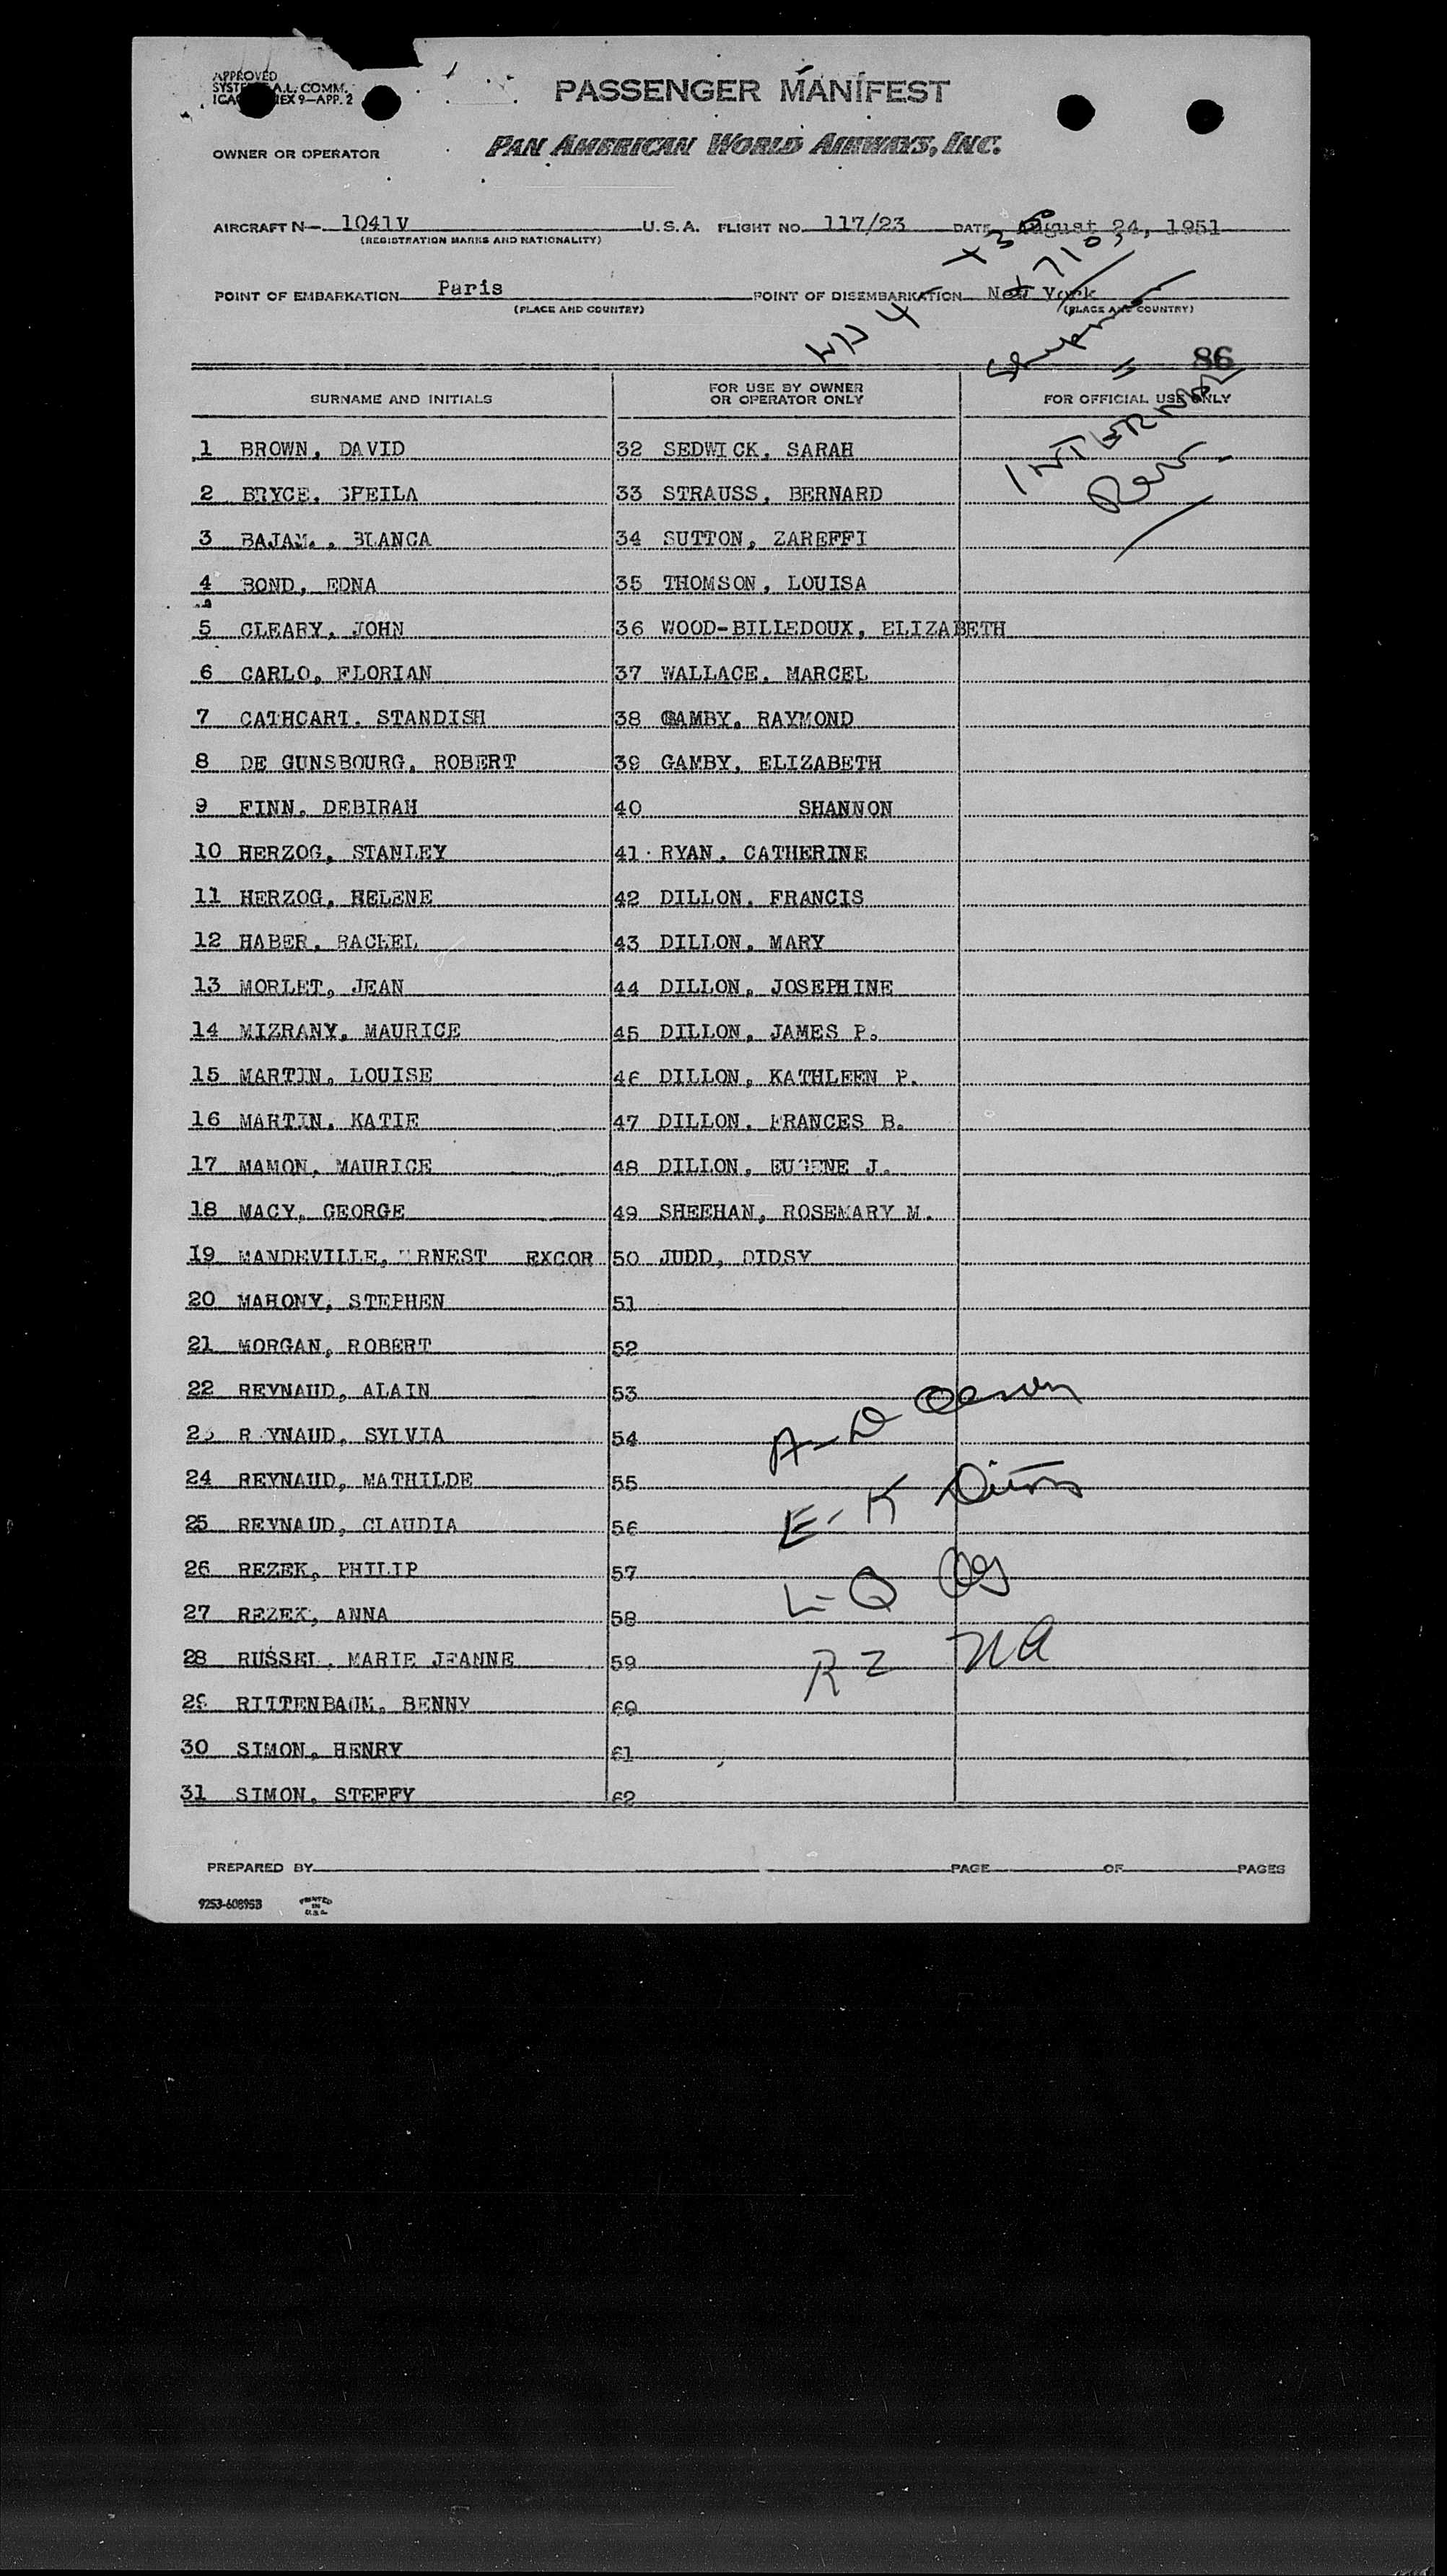 APPROVED
A.L. COMM.
9—APP. 2
PASSENGER MANIFEST
OWNER OR OPERATOR
PAN AMERICAN WORLD AIRWAYS, INC.
AIRCRAFT N— 1041V U.S.A. FLIGHT NO. 117/23 DATE August 24, 1951
(REGISTRATION MARKS AND NATIONALITY)
POINT OF EMBARKATION Paris POINT OF DISEMBARKATION New York
(PLACE AND COUNTRY) (PLACE AND COUNTRY)
86
SURNAME AND INITIALS
FOR USE BY OWNER
OR OPERATOR ONLY
FOR OFFICIAL USE ONLY
INTERNAL
Rev.
1 BROWN, DAVID
2 BRYCE, SHEILA
3 , BLANCA
4 BOND, EDNA
5 CLEARY, JOHN
6 CARLO, FLORIAN
7 CATHCART, STANDISH
8 DE GUNSBOURG, ROBERT
9 FINN, DEBIRAH
10 HERZOG, STANLEY
11 HERZOG, HELENE
12 HABER, RACHEL
13 MORLET, JEAN
14 MIZRANY, MAURICE
15 MARTIN, LOUISE
16 MARTIN, KATIE
17 MAMON, MAURICE
18 MACY, GEORGE
19 MANDEVILLE, ERNEST EXCOR
20 MAHONY, STEPHEN
21 MORGAN, ROBERT
22 REYNAUD, ALAIN
23 REYNAUD, SYLVIA
24 REYNAUD, MATHILDE
25 REYNAUD, CLAUDIA
26 REZEK, PHILIP
27 REZEK, ANNA
28 RUSSEL, MARIE JEANNE
29 RITTENBAUM, BENNY
30 SIMON, HENRY
31 SIMON, STEFFY
32 SEDWICK, SARAH
33 STRAUSS, BERNARD
34 SUTTON, ZAREFFI
35 THOMSON, LOUISA
36 WOOD-BILLEDOUX, ELIZABETH
37 WALLACE, MARCEL
38 GAMBY, RAYMOND
39 GAMBY, ELIZABETH
40 SHANNON
41 RYAN, CATHERINE
42 DILLON, FRANCIS
43 DILLON, MARY
44 DILLON, JOSEPHINE
45 DILLON, JAMES P.
46 DILLON, KATHLEEN P.
47 DILLON, FRANCES B.
48 DILLON, EUGENE J.
49 SHEEHAN, ROSEMARY M.
50 JUDD, DIDSY
51
52
53
54
55
56
57
58
59
60
61
62
A-D
E-K
L-Q
R Z
PREPARED BY PAGE OF PAGES
9253-60895B
PRINTED
IN
U.S.A.